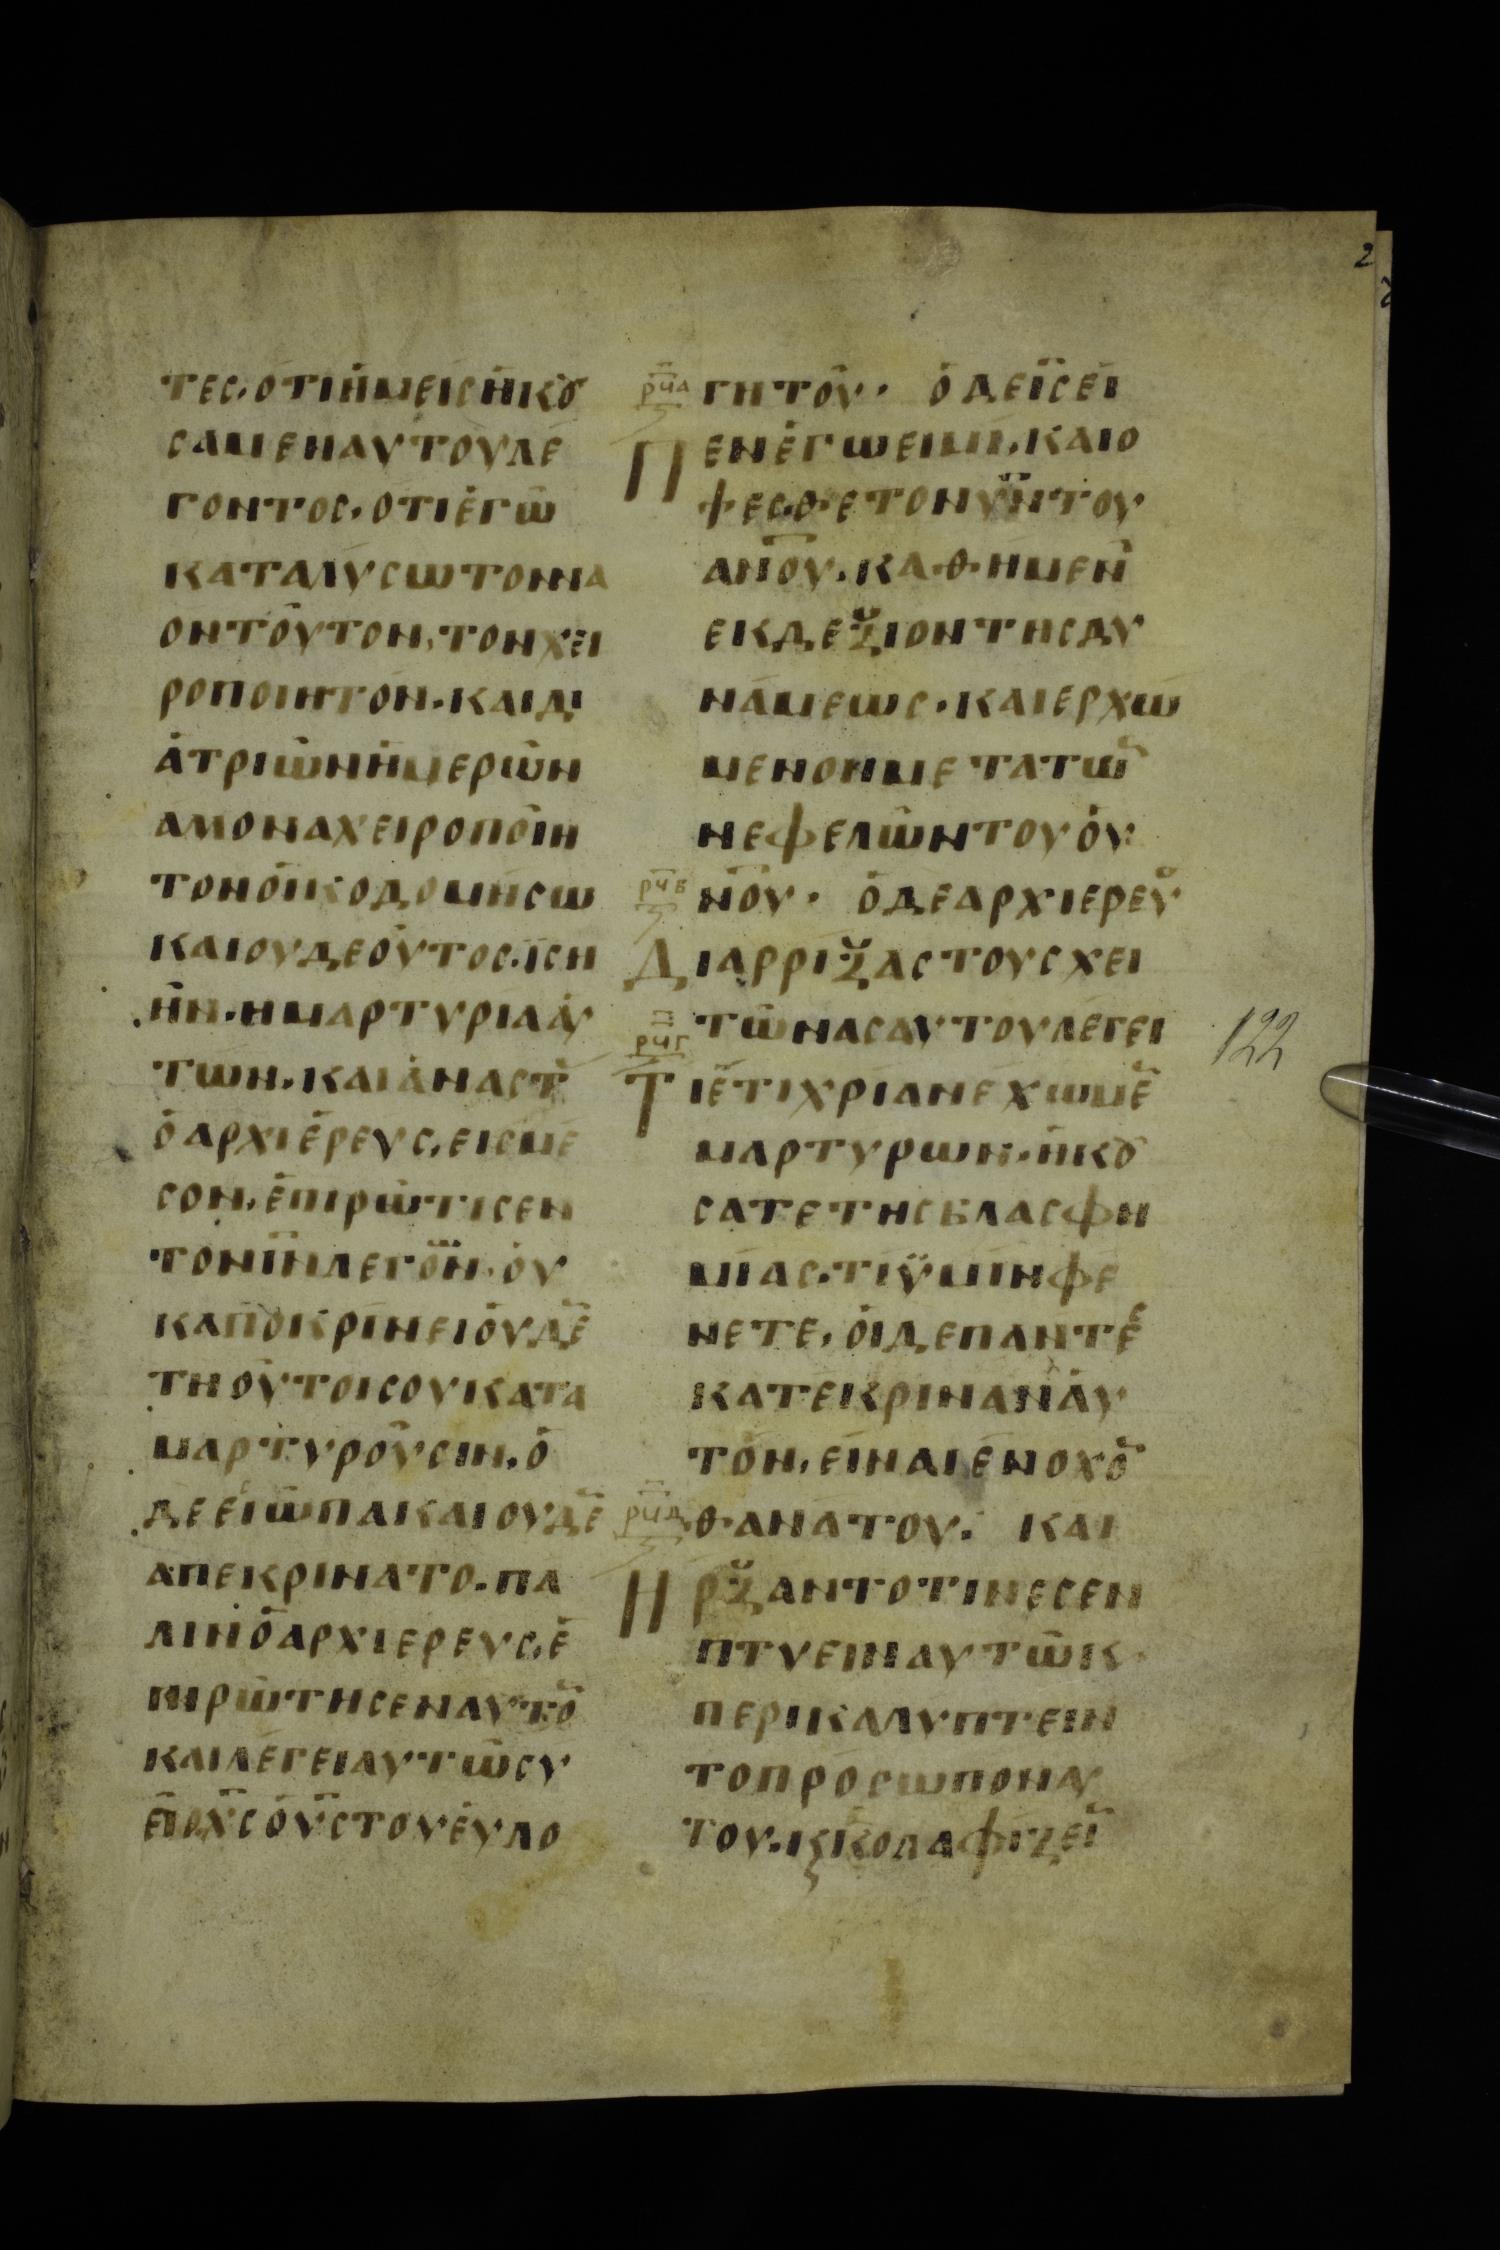 τες. οτι ἡμεις ἠκȣ
σαμεν αυτου λε
γοντος. οτι ἐγω
καταλυσω τον να
ον τουτον, τον χει
ροποιητον. και δι
ἁ τριων ἡμερων
αμον αχειροποιη
τον οἰκοδομησω
και ουδε οὑτος. ιση
ἠν. η μαρτυρια αὐ
των. και ἀναστ
ὁ αρχιερευς, εις με
σον. ἐπιρωτισεν
τον ιν λεγον. οὐ
κ αποκρινει οὐδε
τη οὑτοι σου κατα
μαρτυρουσιν. ὁ
δε εἰωπα και ουδε
απεκρινατο. πα
λιν ὁ αρχιερευς, ἐ
πιρωτησεν αυτο
και λεγει αυτω συ
ει ο χς ὁ υς του εὐλο
ρϟα
γητου. ὁ δε ις εἰ
Πεν ἐγω ειμι. και ο
ψεσθε τον υν του
ανου. καθημεν
εκ δεξιον τησ δυ
ναμεως. και ερχω
μενον μετα τω
νεφελων του οὐ
ρϟβ
νου. ὁ δε αρχιερευ
Διαρριξας τους χει
ρϟγ
τωνας αυτου λεγει
Τι ετι χριαν εχωμε
μαρτυρων. ηκȣ
σατε της βλασφη
μιας. τι ὑμιν φε
νετε, οἱ δε παντε
κατεκριναν αὐ
τον, ειναι ενοχο
ρϟδ
θανατου. και
Ηρξαντο τινες εν
πτυειν αυτω κ
περικαλυπτειν
το προσωπον αυ
του. κ κολαφιζει
122
2